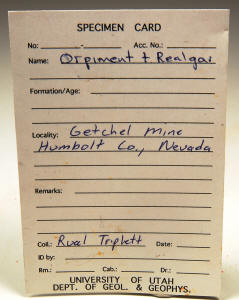 SPECIMEN CARD
No: - Acc. No.:
Name: Orpiment + Realgar
Formation/Age:
Locality: Getchel Mine
Humbolt Co., Nevada
Remarks:
Coll.: Rual Triplett Date:
ID by:
Rm.: Cab.: Dr.:
UNIVERSITY OF UTAH
DEPT. OF GEOL. & GEOPHYS.